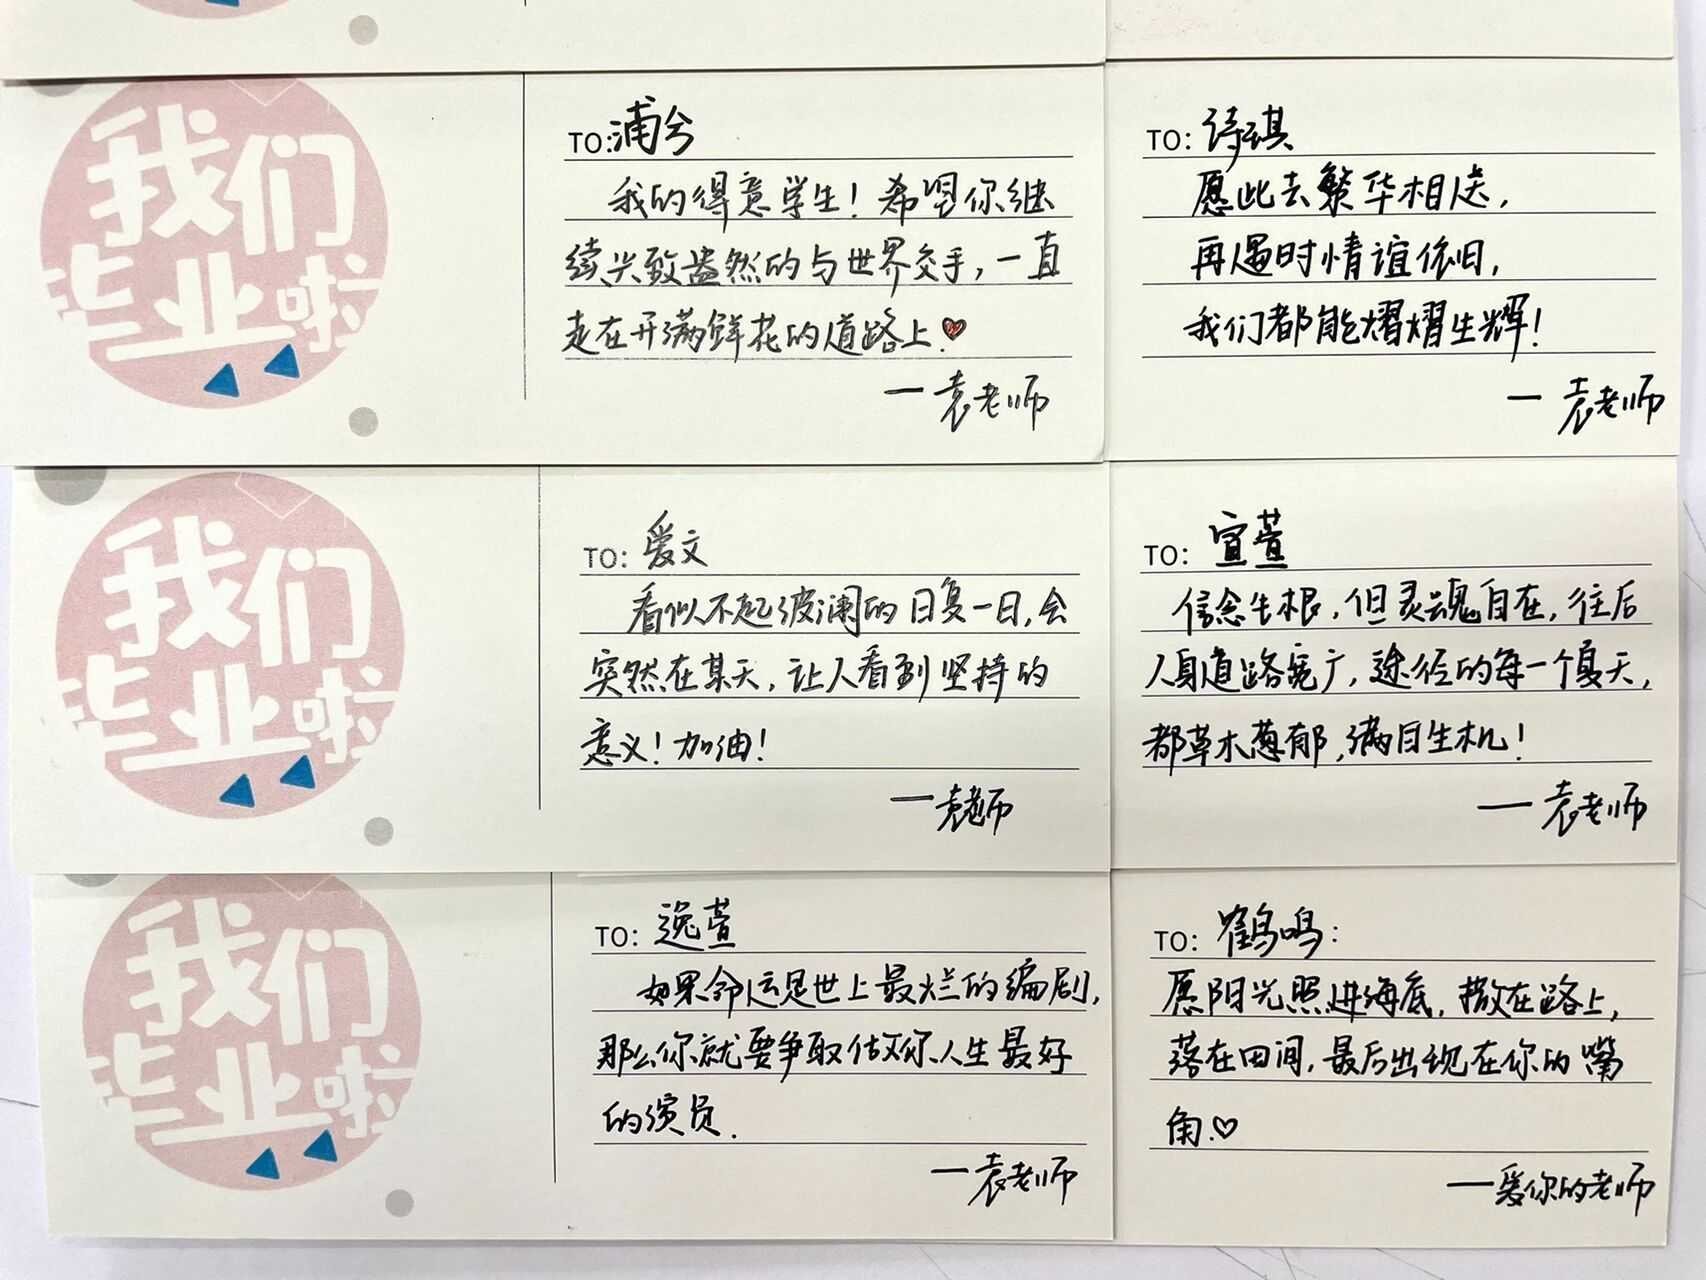 我们
毕业啦
TO:浦兮
我的得意学生！希望你继
续兴致盎然的与世界交手，一直
走在开满鲜花的道路上.
一袁老师
TO:诗琪
愿此去繁华相送，
再遇时情谊依旧，
我们都能熠熠生辉！
一袁老师
我们
毕业啦
TO:爱文
看似不起波澜的日复一日，会
突然在某天，让人看到坚持的
意义！加油！
一袁老师
TO:宣萱
信念生根，但灵魂自在，往后
人身道路宽广，途径的每一个夏天，
都草木葱郁，满目生机！
一袁老师
我们
毕业啦
TO:逸萱
如果命运是世上最烂的编剧，
那么你就要争取做你人生最好
的演员.
一袁老师
TO:鹤鸣：
愿阳光照进海底，撒在路上，
落在田间，最后出现在你的嘴
角.♡
一爱你的老师